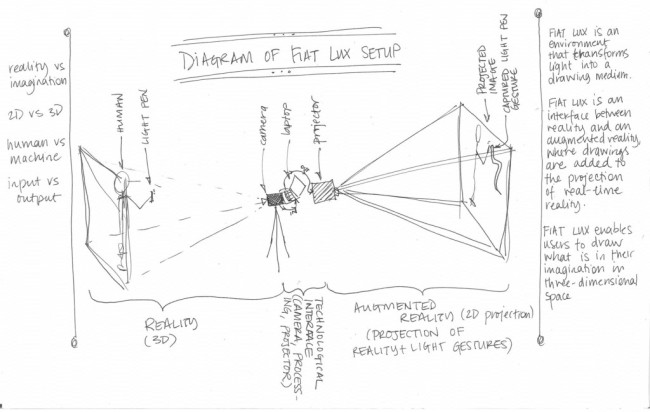 DIAGRAM OF FIAT LUX SETUP
reality vs
imagination
2D vs 3D
human vs
machine
input vs
output
HUMAN
LIGHT PEN
camera
laptop
projector
PROJECTED
IMAGE
CAPTURED LIGHT PEN
GESTURE
REALITY
(3D)
TECHNOLOGICAL
INTERFACE
(CAMERA, PROCESS-
ING, PROJECTOR)
AUGMENTED
REALITY (2D projection)
(PROJECTION OF
REALITY + LIGHT GESTURES)
FIAT LUX is an
environment
that transforms
light into a
drawing medium.
FIAT LUX is an
interface between
reality and an
augmented reality,
where drawings
are added to
the projection
of real-time
reality.
FIAT LUX enables
users to draw
what is in their
imagination in
three-dimensional
space